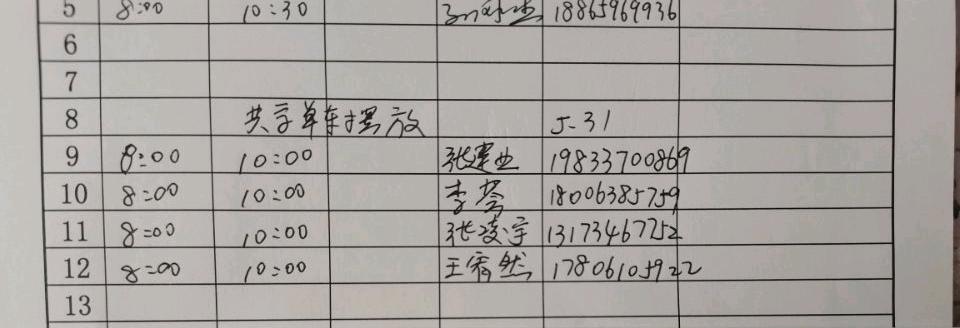 5 8:00 10:30 18865969936
6
7
8 共享单车摆放 5.31
9 8:00 10:00 张建业 19833700869
10 8:00 10:00 李 18006385759
11 8:00 10:00 张凌宇 13173467752
12 8:00 10:00 王霄然 17806105922
13